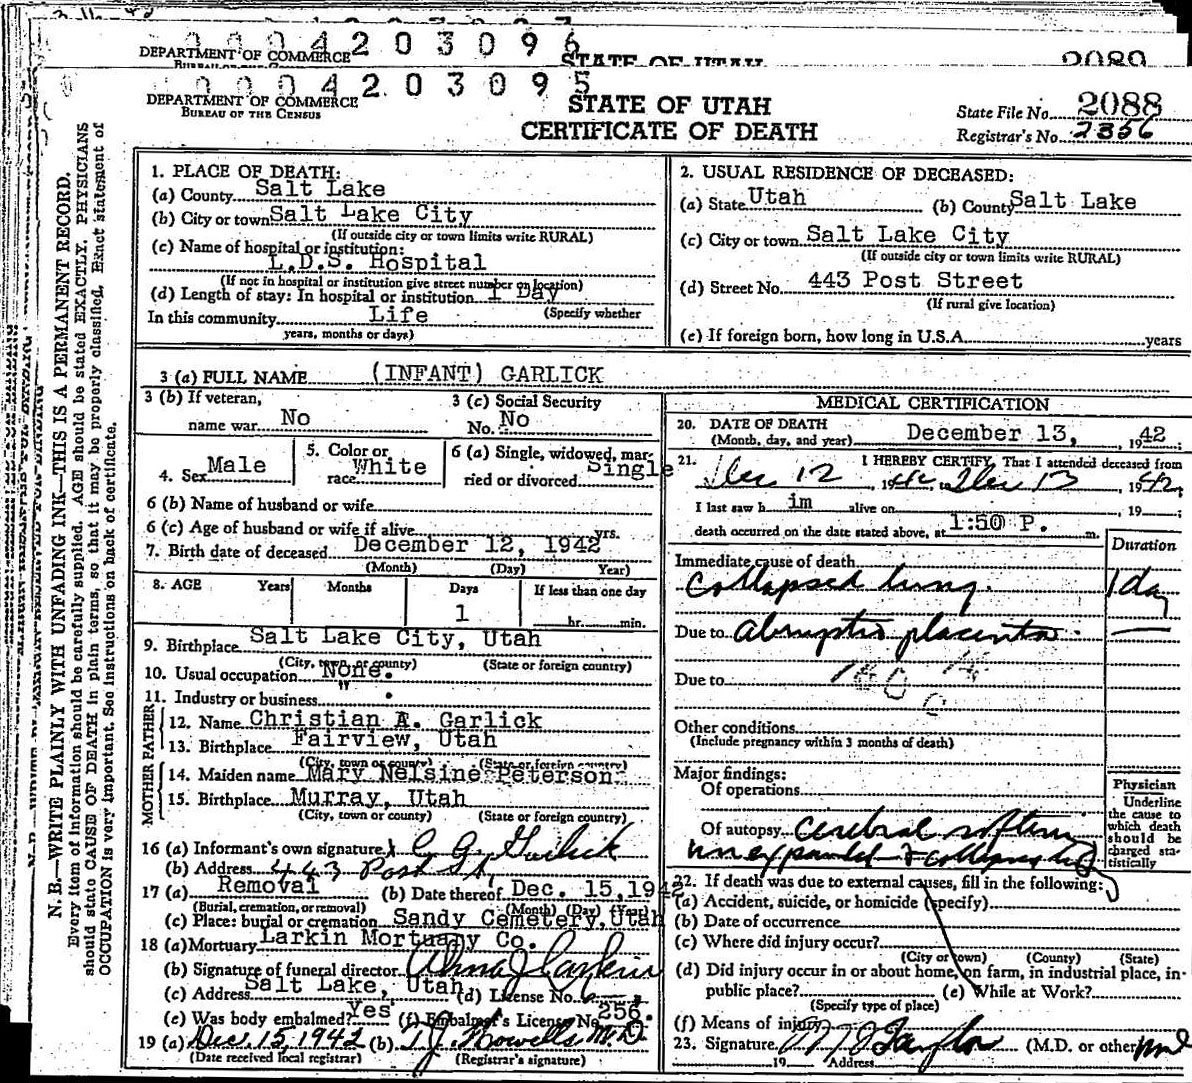 0004203096
DEPARTMENT OF COMMERCE
STATE OF UTAH
2089
0004203095
DEPARTMENT OF COMMERCE
BUREAU OF THE CENSUS
STATE OF UTAH
CERTIFICATE OF DEATH
State File No. 2088
Registrar's No. 2356
N. B.—WRITE PLAINLY WITH UNFADING INK—THIS IS A PERMANENT RECORD.
Every item of information should be carefully supplied. AGE should be stated EXACTLY. PHYSICIANS
should state CAUSE OF DEATH in plain terms, so that it may be properly classified. Exact statement of
OCCUPATION is very important. See instructions on back of certificate.
1. PLACE OF DEATH:
(a) County Salt Lake
(b) City or town Salt Lake City
(If outside city or town limits write RURAL)
(c) Name of hospital or institution:
L.D.S. Hospital
(If not in hospital or institution give street number or location)
(d) Length of stay: In hospital or institution 1 Day
In this community Life (Specify whether
years, months or days)
2. USUAL RESIDENCE OF DECEASED:
(a) State Utah (b) County Salt Lake
(c) City or town Salt Lake City
(If outside city or town limits write RURAL)
(d) Street No. 443 Post Street
(If rural give location)
(e) If foreign born, how long in U.S.A. years
3 (a) FULL NAME (INFANT) GARLICK
3 (b) If veteran,
name war No
3 (c) Social Security
No. No
4. Sex Male
5. Color or
race White
6 (a) Single, widowed, mar-
ried or divorced Single
6 (b) Name of husband or wife
6 (c) Age of husband or wife if alive yrs.
7. Birth date of deceased December 12, 1942
(Month) (Day) Year)
8. AGE Years Months Days If less than one day
1 hr. min.
9. Birthplace Salt Lake City, Utah
(City, town, or county) (State or foreign country)
10. Usual occupation None.
11. Industry or business "
FATHER
12. Name Christian A. Garlick
13. Birthplace Fairview, Utah
(City, town or county) (State or foreign country)
MOTHER
14. Maiden name Mary Nelsine Peterson
15. Birthplace Murray, Utah
(City, town or county) (State or foreign country)
16 (a) Informant's own signature C A Garlick
(b) Address 443 Post St.
17 (a) Removal (b) Date thereof Dec. 15, 1942
(Burial, cremation, or removal) (Month) (Day) (Year)
(c) Place: burial or cremation Sandy Cemetery, Utah
18 (a) Mortuary Larkin Mortuary Co.
(b) Signature of funeral director Alma J Larkin
(c) Address Salt Lake, Utah (d) License No.
(e) Was body embalmed? Yes (f) Embalmer's License No. 256.
19 (a) Dec. 15, 1942 (b) T J Howells M.D.
(Date received local registrar) (Registrar's signature)
MEDICAL CERTIFICATION
20. DATE OF DEATH
(Month, day, and year) December 13, 1942
21. I HEREBY CERTIFY, That I attended deceased from
Dec 12, 1942, to Dec 13, 1942,
I last saw h im alive on , 19 ;
death occurred on the date stated above, at 1:50 P. m.
Duration
Immediate cause of death
Collapsed lung. 1 day
Due to abruptio placenta.
Due to
Other conditions
(Include pregnancy within 3 months of death)
Major findings:
Of operations
Of autopsy cerebral
unexpanded &
Physician
Underline
the cause to
which death
should be
charged sta-
tistically
22. If death was due to external causes, fill in the following:
(a) Accident, suicide, or homicide (specify)
(b) Date of occurrence
(c) Where did injury occur?
(City or town) (County) (State)
(d) Did injury occur in or about home, on farm, in industrial place, in-
public place? (e) While at Work?
(Specify type of place)
(f) Means of injury
23. Signature Taylor (M.D. or other) MD
19 Address